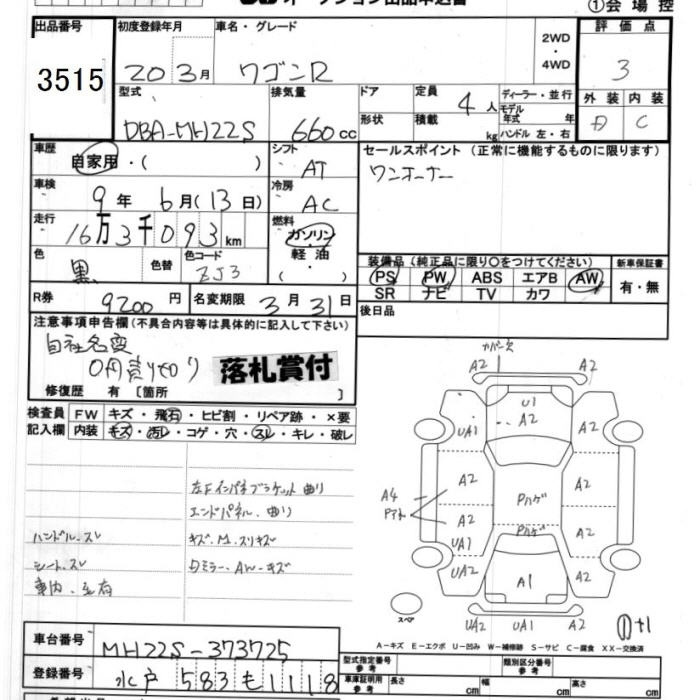 オークション出品申込書
①会場控
出品番号 初度登録年月 車名・グレード 2WD・4WD 評価点
3515 20 3月 ワゴンR 3
型式 排気量 ドア 定員 4人 ディーラー・並行 外装 内装
DBA-MH22S 660cc 形状 積載 kg モデル年式 年 ハンドル 左・右 C
車歴 自家用・( ) シフト AT セールスポイント (正常に機能するものに限ります)
ワンオーナー
車検 9年 6月(13日) 冷房 AC
走行 16万3千093km 燃料 ガソリン・軽油・( )
装備品(純正品に限り○をつけてください) 新車保証書
色 黒 色替 色コード ZJ3 PS PW ABS エアB AW 有・無
SR ナビ TV カワ
R券 9200円 名変期限 3月31日 後日品
注意事項申告欄(不具合内容等は具体的に記入して下さい)
自社名変
0円売り切り 落札賞付
修復歴 有[箇所 ]
検査員記入欄 FW キズ・飛石・ヒビ割・リペア跡・×要
内装 キズ・汚レ・コゲ・穴・スレ・キレ・破レ
左Fインパネブラケット曲り
エンドパネル、曲り
ハンドル、スレ キズ、M、スリキズ
シート、スレ 左ミラー、AW、キズ
車内、
カバー欠
A2 A2
U1
UA1 A2 A2
A2 Pハゲ A2
A4
A2 Pハゲ A2
UA1
UA2 A1 A2
スペア
UA2 UA1 A2
A-キズ E-エクボ U-凹み W-補修跡 S-サビ C-腐食 XX-交換済
車台番号 MH22S-373725
型式指定番号 参考 類別区分番号 参考
登録番号 水戸 583 も 1118
車庫証明用 参考 長さ cm 幅 cm 高さ cm